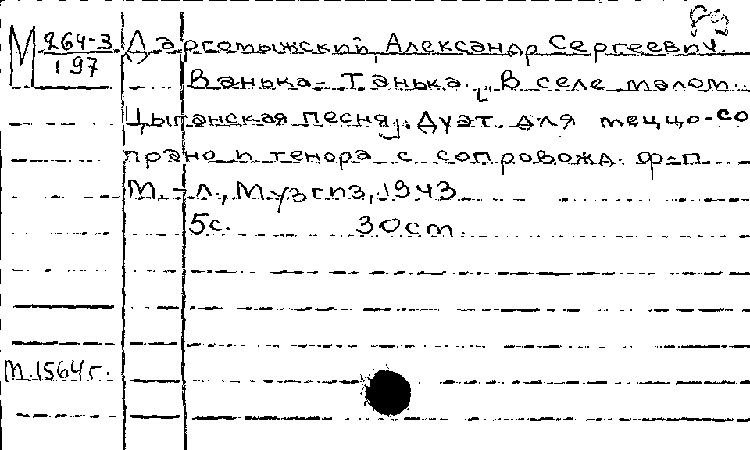 М 264-3 Даргомыжский, Александр Сергеевич.
197
Ванька-Танька. "В селе малом...
Цыганская песня. Дуэт для меццо-со
прано и тенора с сопровожд. ф-п
М.-Л., Музгиз, 1943
5с. 30см.
М.1564г.